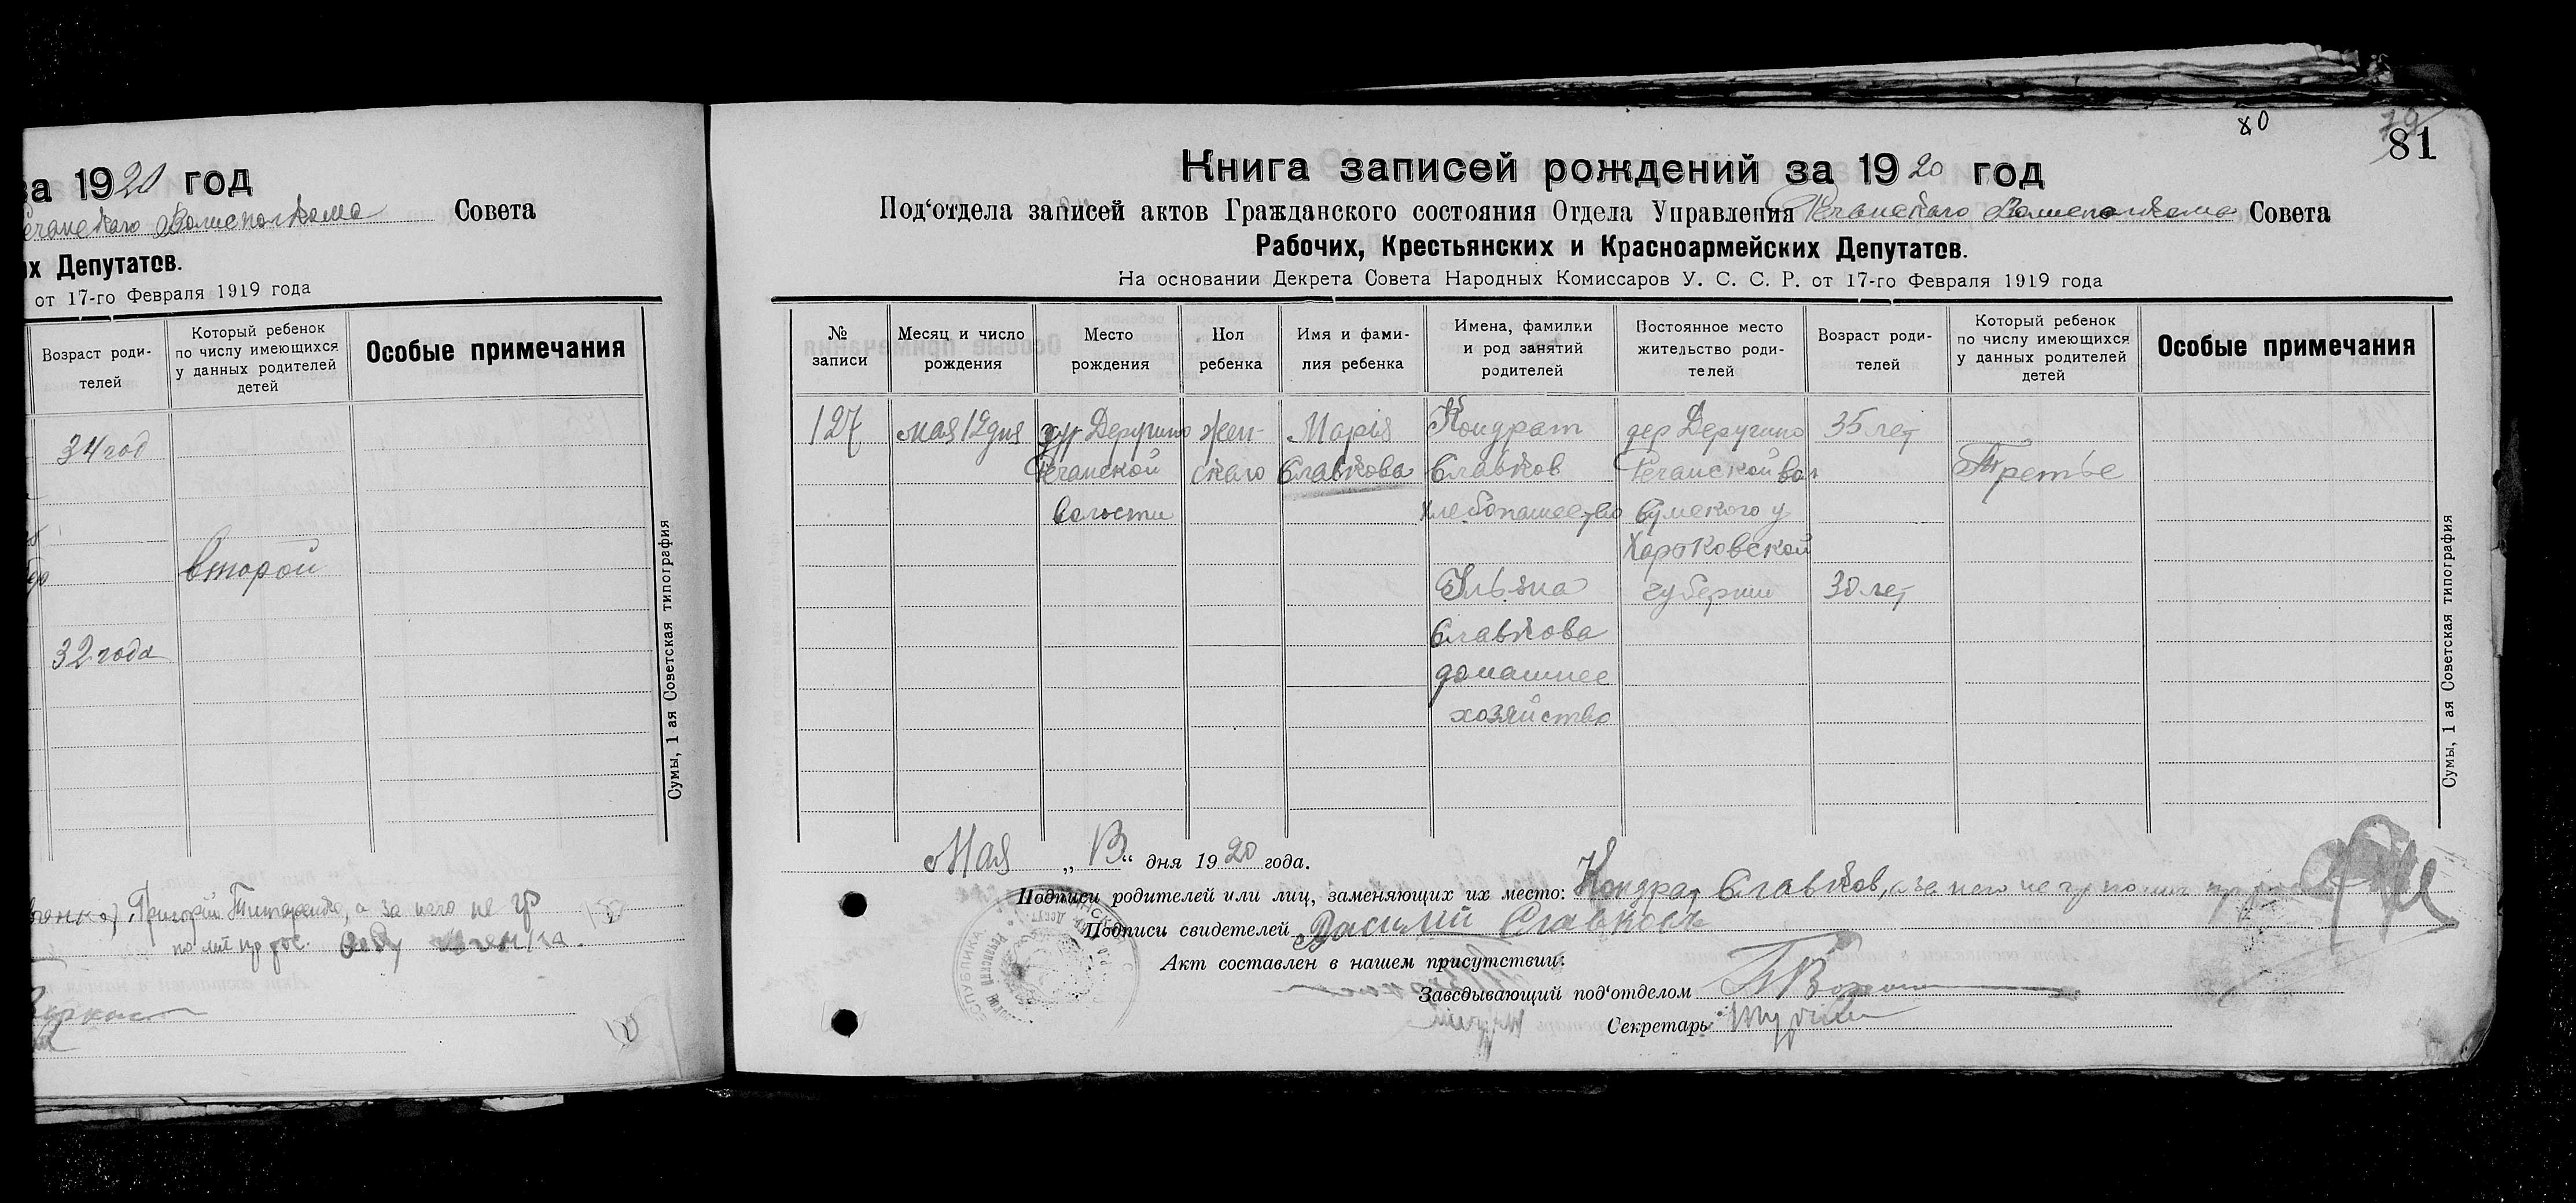 за 1920 год
Речанского Волисполкома Совета
их Депутатов.
от 17-го Февраля 1919 года
Возраст роди-
телей
Который ребенок
по числу имеющихся
у данных родителей
детей
Особые примечания
34 год
второй
32 года
Григорий Титаренко, а за него не гр
по ли пр рос.
Сумы, 1 ая Советская типография
80
79
81
Книга записей рождений за 1920 год
Под‘отдела записей актов Гражданского состояния Отдела Управления Речанского Волисполкома Совета
Рабочих, Крестьянских и Красноармейских Депутатов.
На основании Декрета Совета Народных Комиссаров У. С. С. Р. от 17-го Февраля 1919 года
№
записи
Месяц и число
рождения
Место
рождения
Пол
ребенка
Имя и фами-
лия ребенка
Имена, фамилии
и род занятий
родителей
Постоянное место
жительство роди-
телей
Возраст роди-
телей
Который ребенок
по числу имеющихся
у данных родителей
детей
Особые примечания
127
мая 12 дня
дер Деругино
Речанской
волости
жен-
скаго
Марія
Славкова
Кондрат
Славков
хлебопашество
Ульяна
Славкова
домашнее
хозяйство
дер Деругино
Речанской вол
Сумского у
Харьковской
губернии
35 лет
30 лет
Третье
Мая „13“ дня 1920 года.
Подписи родителей или лиц, заменяющих их место: Кондрат Славков, а за него не гр
Подписи свидетелей Василий Славковъ
Акт составлен в нашем присутствии:
Заведывающий под‘отделом
Секретарь
Сумы, 1 ая Советская типография